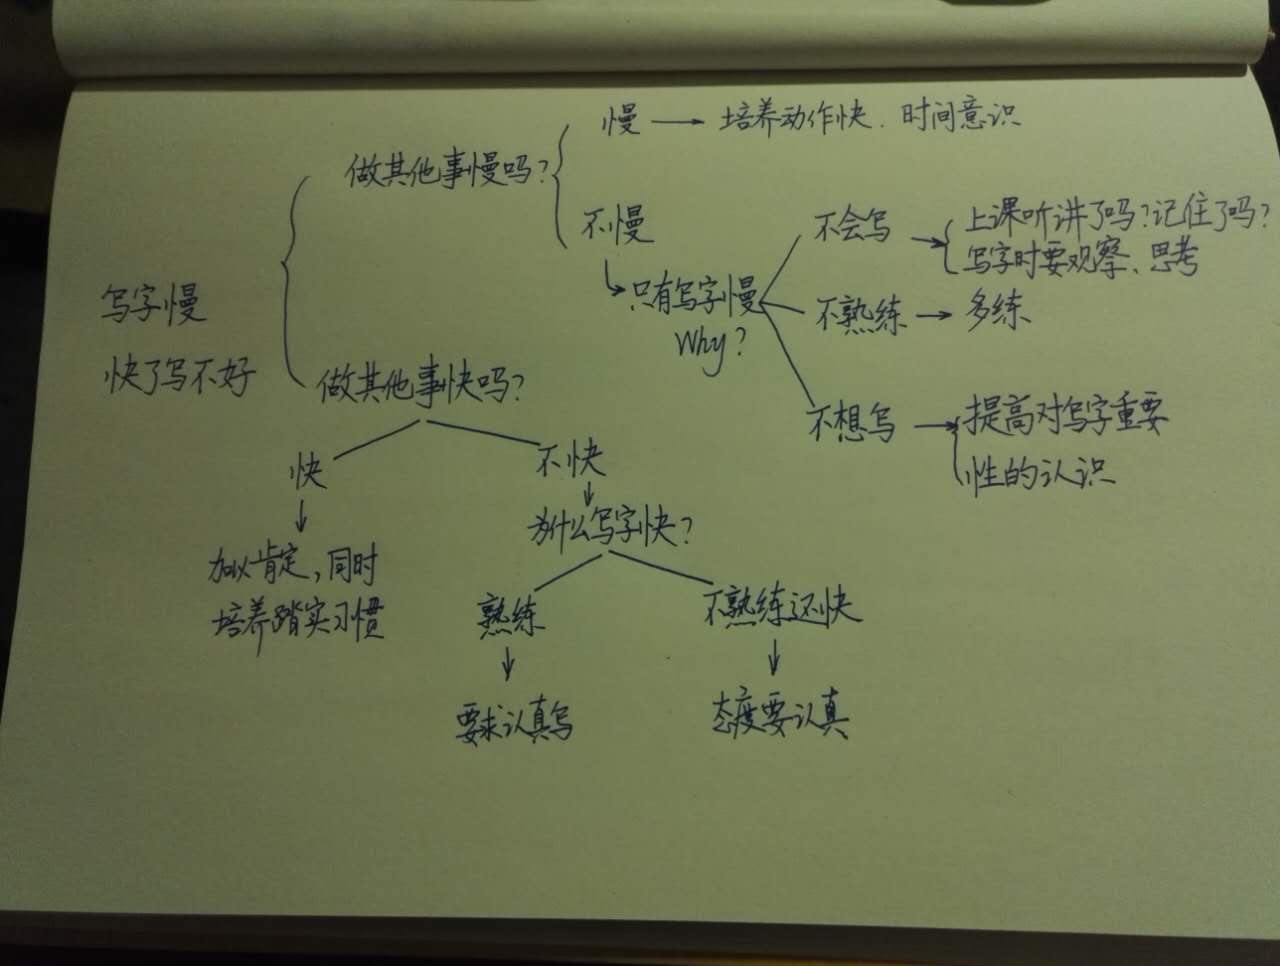 慢 → 培养动作快、时间意识
做其他事慢吗?
不慢
不会写 → 上课听讲了吗?记住了吗?
写字时要观察、思考
写字慢
只有写字慢
不熟练 → 多练
Why?
快了写不好
做其他事快吗?
不想写 → 提高对写字重要
性的认识
快
不快
为什么写字快?
加以肯定,同时
培养踏实习惯
熟练
不熟练还快
要求认真写
态度要认真